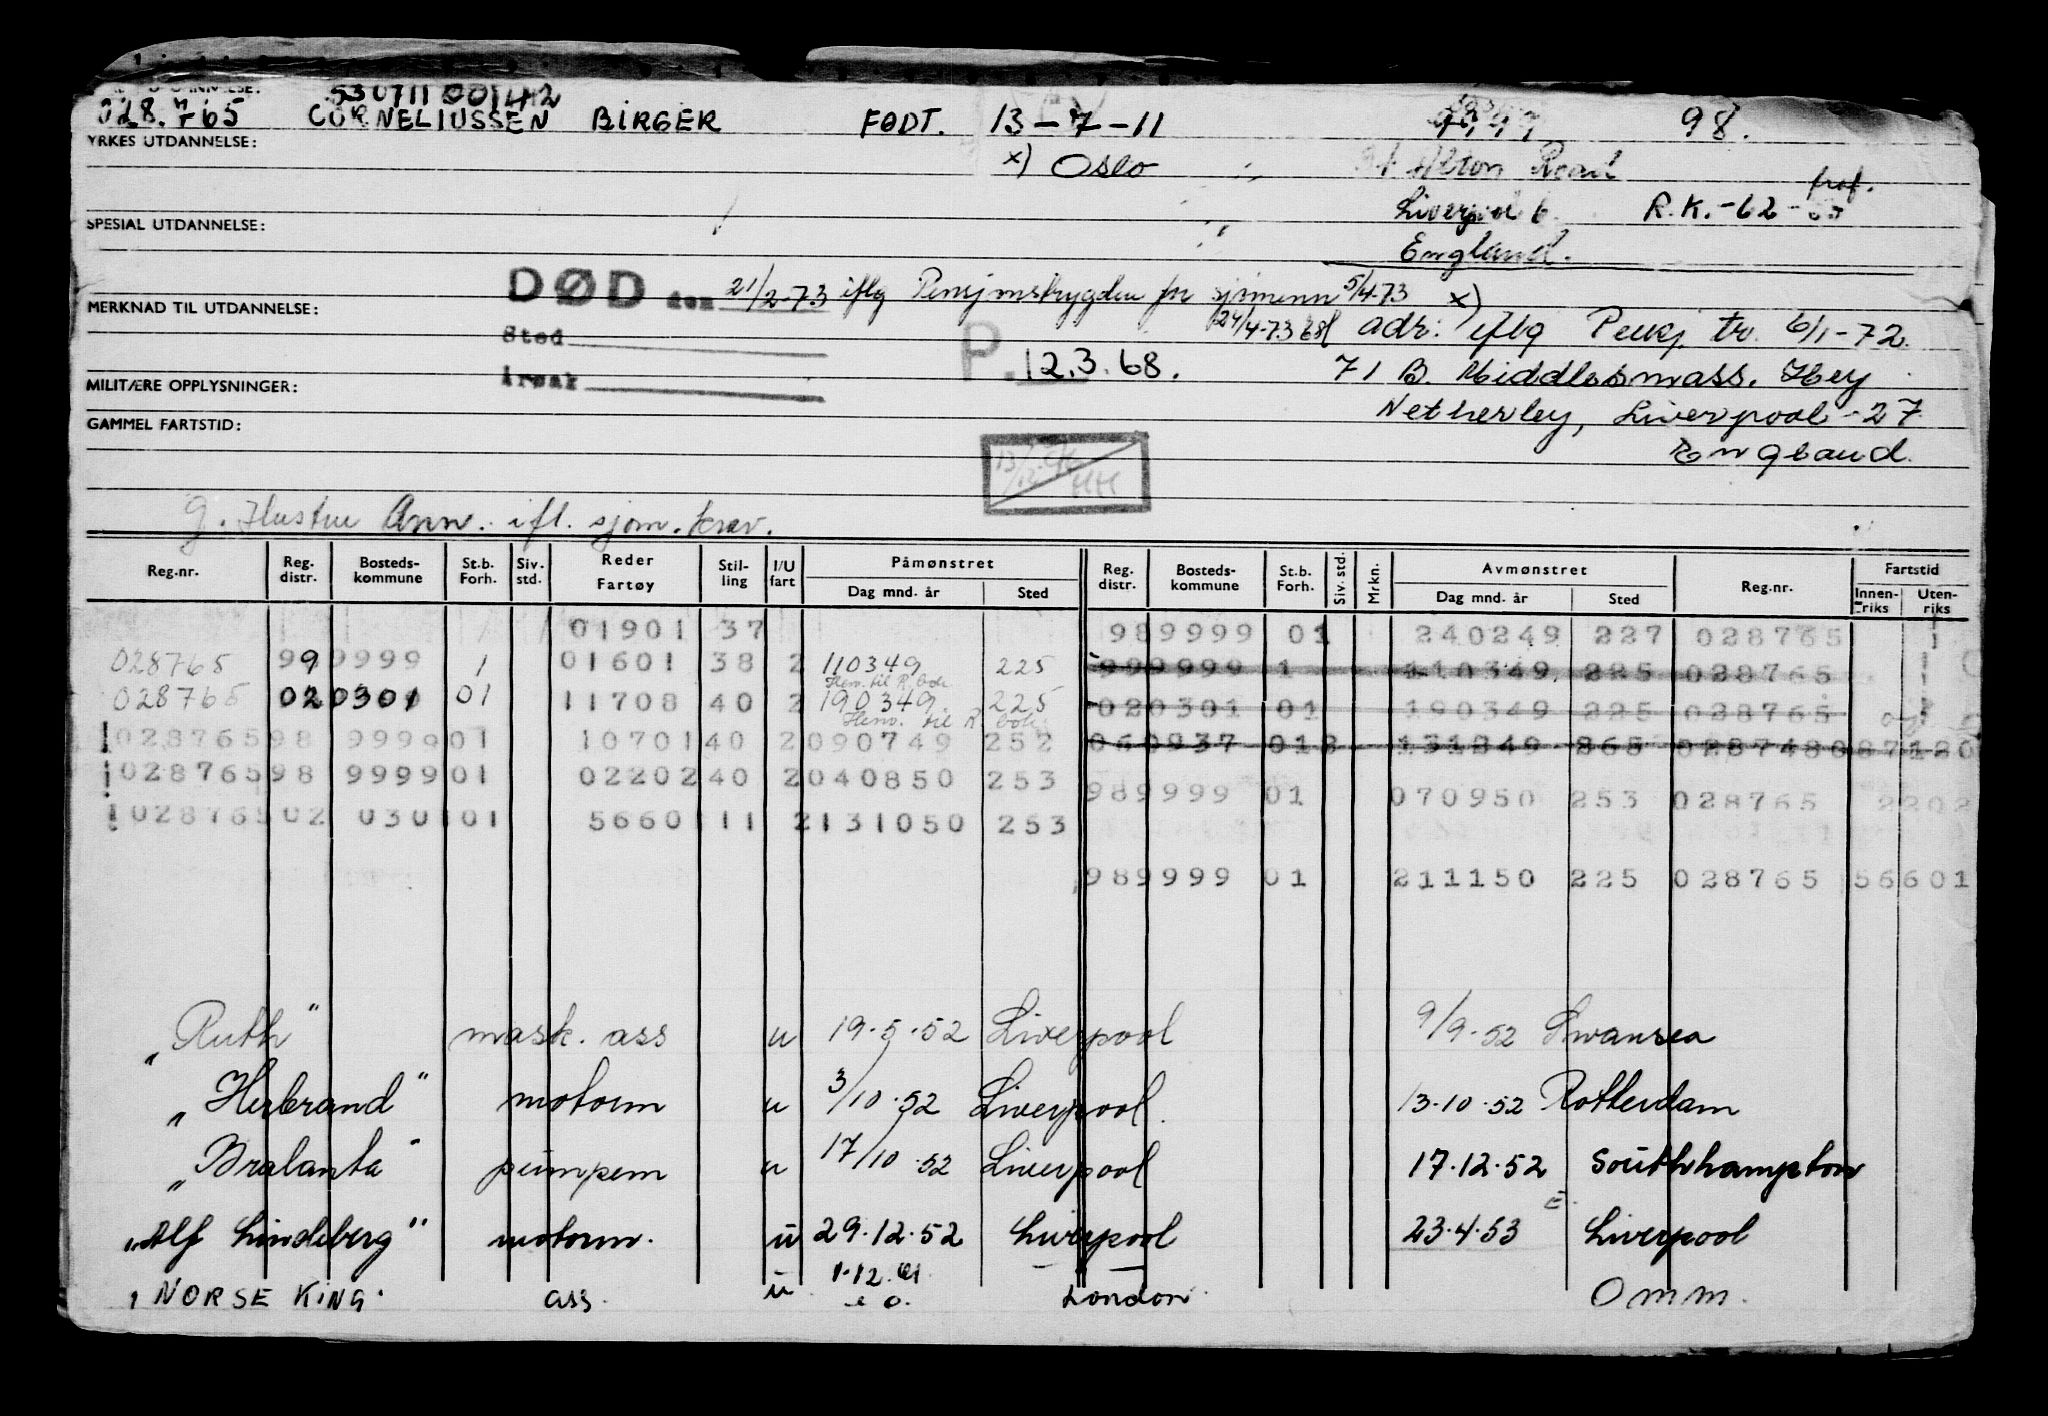 530711 00142
028.765 CORNELIUSSEN BIRGER FØDT. 13-7-11 98.
YRKES UTDANNELSE:
x) Oslo Alton Road
Liverpool 6. R.K.-62-
SPESIAL UTDANNELSE:
England.
DØD den 21/2-73 iflg Pensjonstrygden for sjømenn 5/4-73 x)
MERKNAD TIL UTDANNELSE:
Sted 24/4-73 adr. iflg Pensj. tr. 6/1-72.
P. 12.3.68.
Årsak
MILITÆRE OPPLYSNINGER: 71 B. Middlesmass. Hey
Netherley, Liverpool-27
GAMMEL FARTSTID:
England.
g. Hustru Ann. ifl. sjøm. krav.
Reg.nr. Reg. distr. Bosteds-kommune St.b. Forh. Siv. std. Reder Fartøy Stil-ling I/U fart Påmønstret Dag mnd. år Sted Reg. distr. Bosteds-kommune St.b. Forh. Siv. std. Mrkn. Avmønstret Dag mnd. år Sted Reg.nr. Fartstid Innen-riks Uten-riks
01901 37 989999 01 240249 227 028765
028765 99 9999 1 01601 38 2 110349 225 999999 1 110349 225 028765
028765 020301 01 11708 40 2 190349 225 020301 01 190349 225 028765
Hem. til R. bok
028765 98 9999 01 10701 40 2 090749 252 060937 01 3 131249 265 028748 0871 20
028765 98 9999 01 02202 40 2 040850 253
989999 01 070950 253 028765 2202
028765 02 0301 01 5660 11 2 131050 253
989999 01 211150 225 028765 56601
"Ruth" mask. ass u 19.5.52 Liverpool 9/9-52 Swansea
"Herbrand" motorm u 3/10.52 Liverpool. 13.10.52 Rotterdam
"Bralanta" pumpem u 17/10.52 Liverpool 17.12.52 Southhampton
"Alf Lindeberg" motorm. u 29.12.52 Liverpool 23.4.53 Liverpool
"NORSE KING" ass. u 1.12.61 London. Omm.